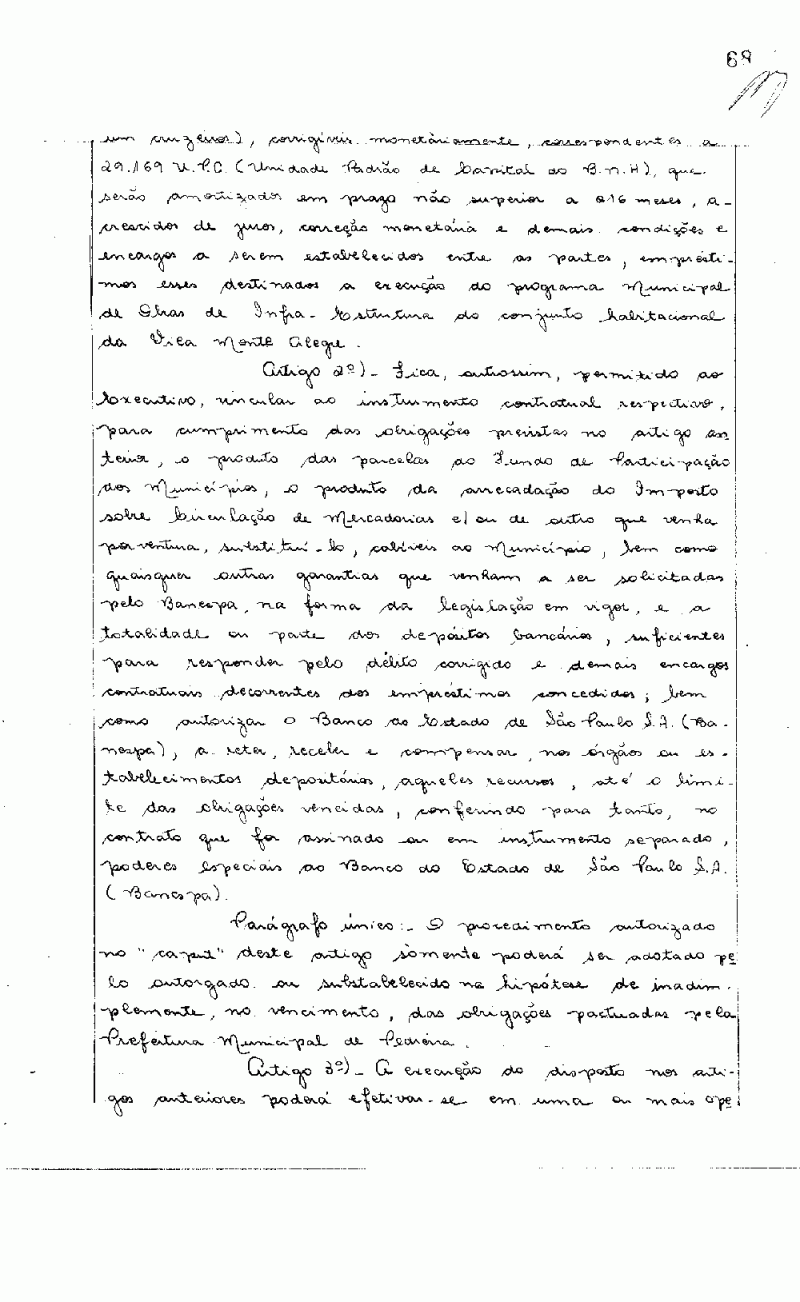 68
um cruzeiros), corrigíveis monetàriamente, correspondentes a
29.169 U.P.C. (Unidade Padrão de Capital do B.N.H), que
serão amortizados em prazo não superior a 216 meses, a-
crescidos de juros, correção monetária e demais condições e
encargos a serem estabelecidos entre as partes, emprésti-
mos esses destinados a execução do programa Municipal
de Obras de Infra-Estrutura do conjunto habitacional
da Vila Monte Alegre.
Artigo 2º)- Fica, outrossim, permitido ao
Executivo, vincular ao instrumento contratual respectivo,
para cumprimento das obrigações previstas no artigo an
terior, o produto das parcelas do Fundo de Participação
dos Municípios, o produto da arrecadação do Imposto
sobre Circulação de Mercadorias e/ou de outro que venha
porventura, substituí-lo, cabíveis ao Município, bem como
quaisquer outras garantias que venham a ser solicitadas
pelo Banespa, na forma da legislação em vigor, e a
totalidade ou parte dos depósitos bancários, suficientes
para responder pelo débito corrigido e demais encargos
contratuais decorrentes dos empréstimos concedidos; bem
como autorizar o Banco do Estado de São Paulo S.A. (Ba-
nespa), a reter, receber e compensar, nos órgãos ou es-
tabelecimentos depositários, aqueles recursos, até o limi-
te das obrigações vencidas, conferindo para tanto, no
contrato que for assinado ou em instrumento separado,
poderes especiais ao Banco do Estado de São Paulo S.A.
(Banespa).
Parágrafo único:- O procedimento autorizado
no "caput" deste artigo sòmente poderá ser adotado pe
lo outorgado ou substabelecido na hipótese de inadim-
plemente, no vencimento, das obrigações pactuadas pela
Prefeitura Municipal de Pedreira.
Artigo 3º)- A execução do disposto nos arti-
gos anteriores poderá efetivar-se em uma ou mais ope